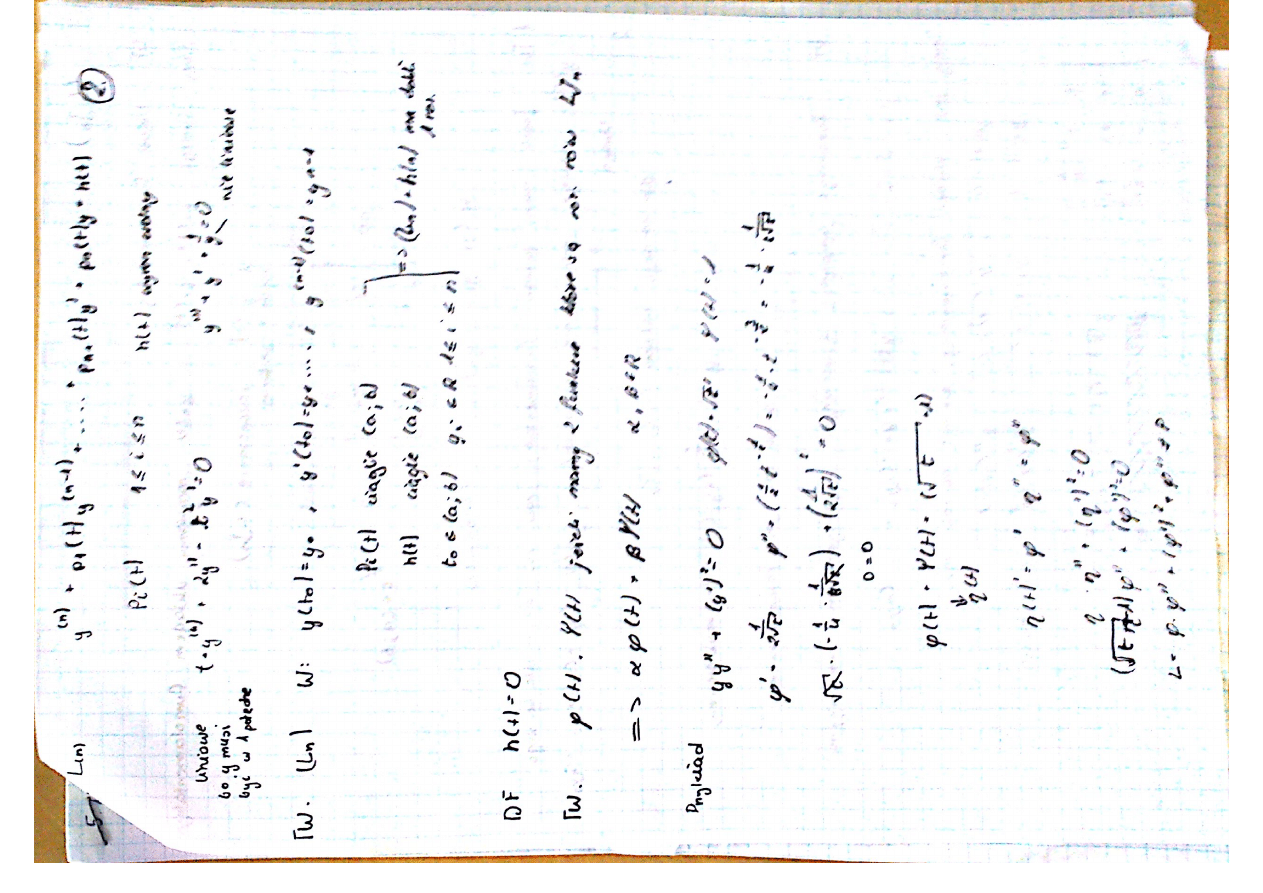 L(n) y^(n) + p1(t) y^(n-1) + ..... + pn-1(t)y' + pn(t)y = h(t) (2.)
Pi(t) 1 ≤ i ≤ n h(t) wyraz wolny
liniowe
bo y musi
być w 1 potedze
t·y^(4) + 2y'' - t²y = 0 y''' + y' + 1/y = 0
nie liniowe
TW. (Ln) W: y(t0) = y0, y'(t0) = y0 ....., y^(n-1)(t0) = yn-1
Pi(t) ciągłe (a; b)
h(t) ciągłe (a; b) => (Ln) + h(n) ma dokł. 1 roz.
t0 ∈ (a; b) yi ∈ R 1 ≤ i ≤ n
DF h(t) = 0
TW. φ(t), Ψ(t) jeżeli mamy 2 funkcje które są roz. rów. LJn
=> αφ(t) + βΨ(t) α, β ∈ R
Przykład
yy'' + (y')² = 0 φ(t) = √t Ψ(t) = 1
φ' = 1/2√t φ'' = (1/2 t^-1/2)' = -1/4 · t^-3/2 = -1/4 · 1/t√t
√t · (-1/4 · 1/t√t) + (1/2√t)² = 0
0 = 0
φ(t) + Ψ(t) = (√t + 1)
η(t)
η(t)' = φ' η'' = φ''
η · η'' + (η')² = 0
(√t + 1) φ'' + (φ')² = 0
L = φ · φ'' + (φ')² + φ'' ≠ P